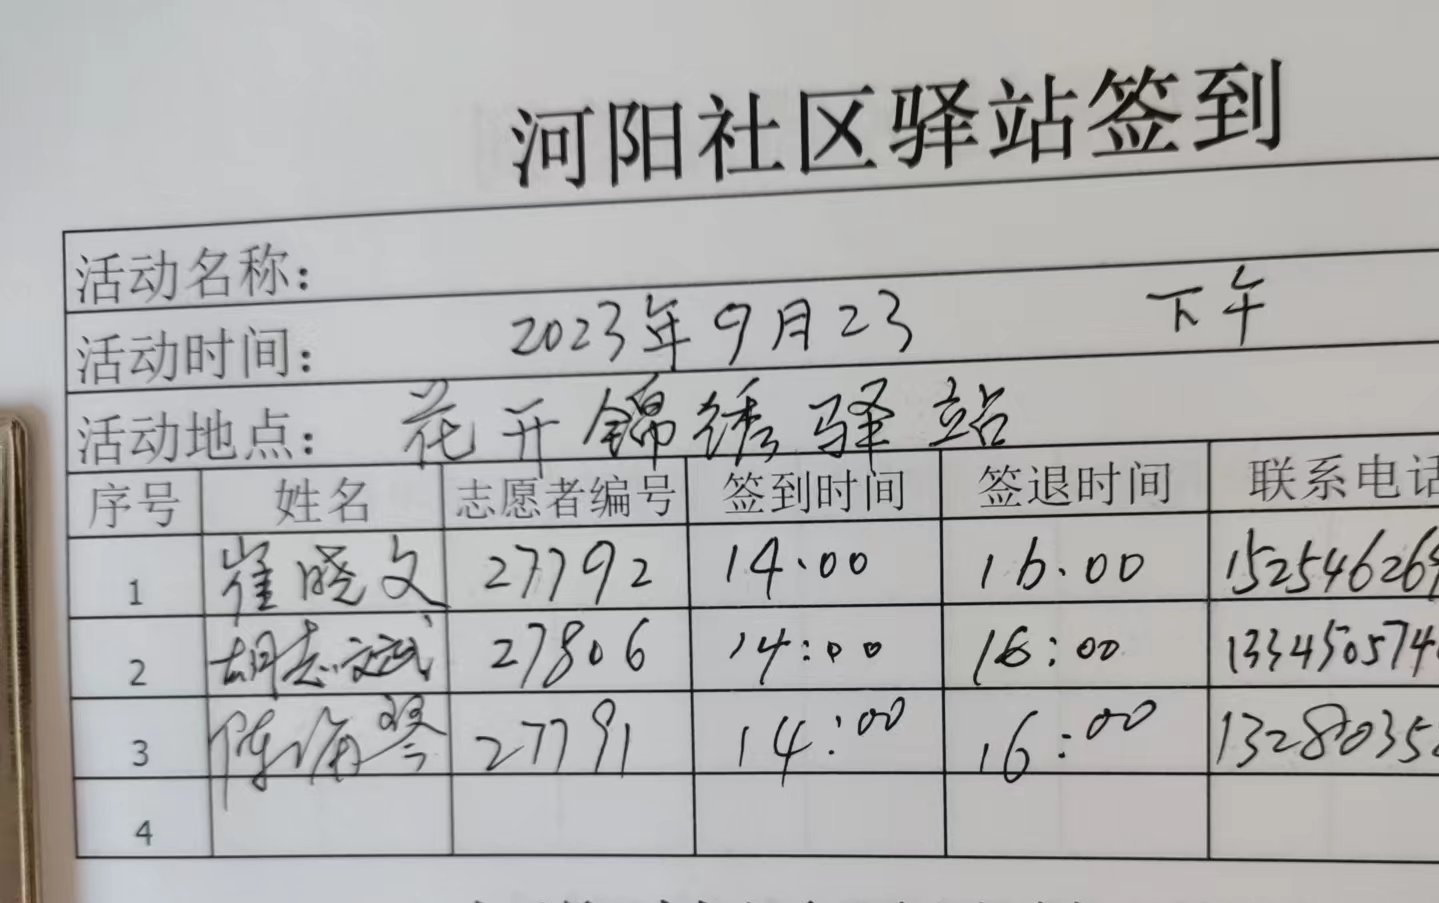 河阳社区驿站签到
活动名称：
活动时间： 2023年9月23 下午
活动地点： 花开锦绣驿站
序号 姓名 志愿者编号 签到时间 签退时间 联系电话
1 崔晓文 27792 14.00 16.00 152546269
2 胡志斌 27806 14:00 16:00 133450574
3 陈海琴 27791 14:00 16:00 13280358
4